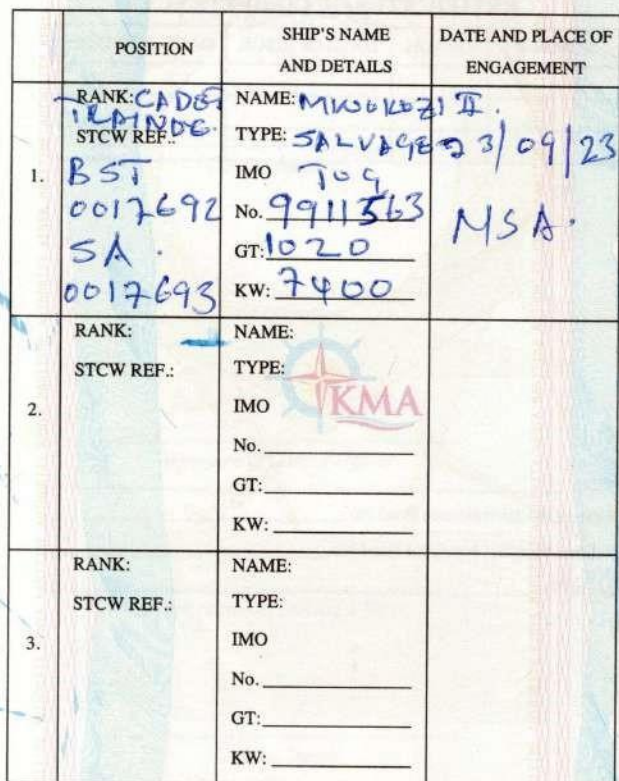 POSITION
SHIP'S NAME
AND DETAILS
DATE AND PLACE OF
ENGAGEMENT
1.
RANK: CADET
TRAINDE
STCW REF.:
BST
0017692
SA.
0017693
NAME: MWOKOZI II.
TYPE: SALVAGE
IMO TUG
No. 9911563
GT: 1020
KW: 7400
23/09/23
MSA.
2.
RANK:
STCW REF.:
NAME:
TYPE:
IMO
No.
GT:
KW:
KMA
3.
RANK:
STCW REF.:
NAME:
TYPE:
IMO
No.
GT:
KW: